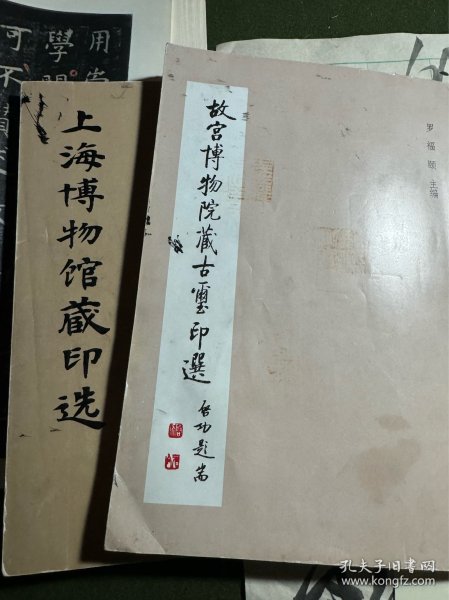 用
學
可不
上海博物馆藏印选
故宫博物院藏古璽印選
启功题耑
罗福颐 主编
孔夫子旧书网
www.kongfz.com